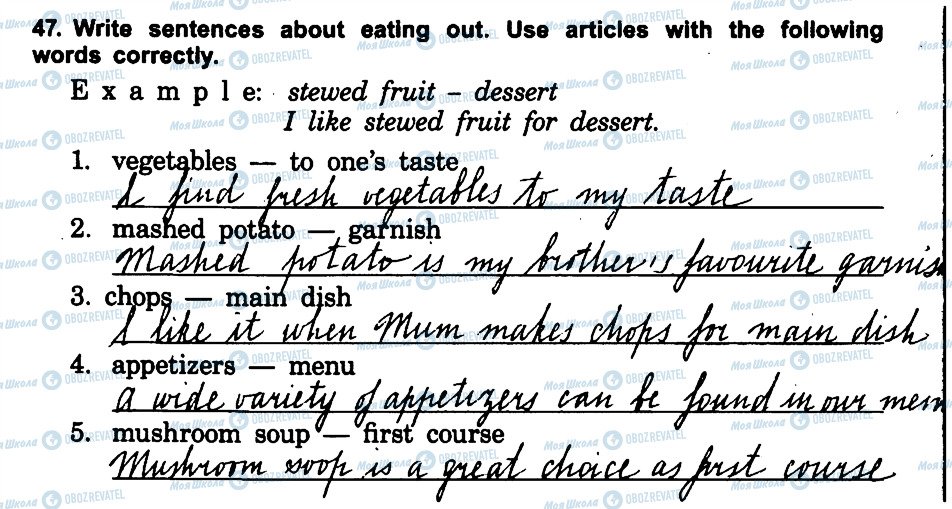 47. Write sentences about eating out. Use articles with the following
words correctly.
Example: stewed fruit – dessert
I like stewed fruit for dessert.
1. vegetables — to one's taste
I find fresh vegetables to my taste
2. mashed potato — garnish
Mashed potato is my brother's favourite garnish
3. chops — main dish
I like it when Mum makes chops for main dish
4. appetizers — menu
A wide variety of appetizers can be found in our menu
5. mushroom soup — first course
Mushroom soop is a great choice as first course
Моя Школа OBOZREVATEL